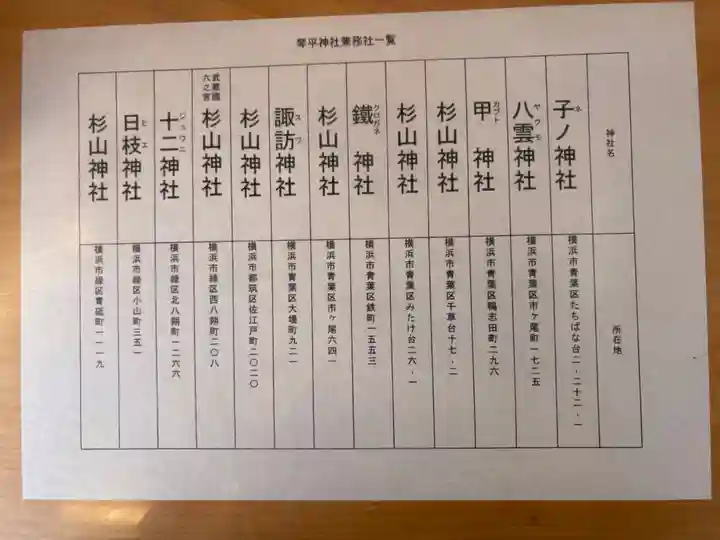 琴平神社兼務社一覧
神社名
所在地
子ノ神社
ネ
横浜市青葉区たちばな台二‐二十二‐一
八雲神社
ヤクモ
横浜市青葉区市ヶ尾町一七二五
甲 神社
カブト
横浜市青葉区鴨志田町二九六
杉山神社
横浜市青葉区千草台十七‐二
杉山神社
横浜市青葉区みたけ台二六‐一
鐵 神社
クロガネ
横浜市青葉区鉄町一五五三
杉山神社
横浜市青葉区市ヶ尾六四一
諏訪神社
スワ
横浜市青葉区大場町九二一
杉山神社
横浜市都筑区佐江戸町二〇二〇
武蔵國
六之宮
杉山神社
横浜市緑区西八朔町二〇八
十二神社
ジュウニ
横浜市緑区北八朔町一二六六
日枝神社
ヒエ
横浜市緑区小山町三五一
杉山神社
横浜市緑区青砥町一一一九